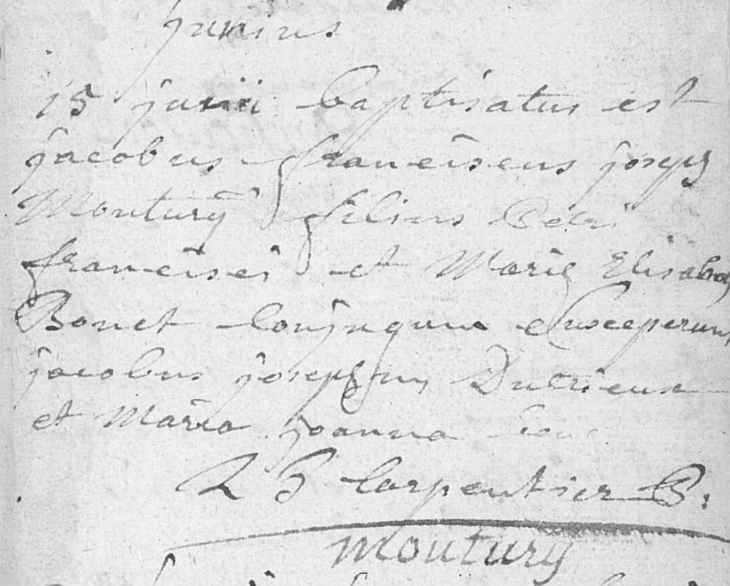 junius
15 junii baptisatus est
jacobus franciscus joseph
Moutury filius
francisci et Marie Elisabeth
Bonet Conjugum Susceperunt
jacobus josephus Dutrieux
et Maria joanna
Carpentier
moutury